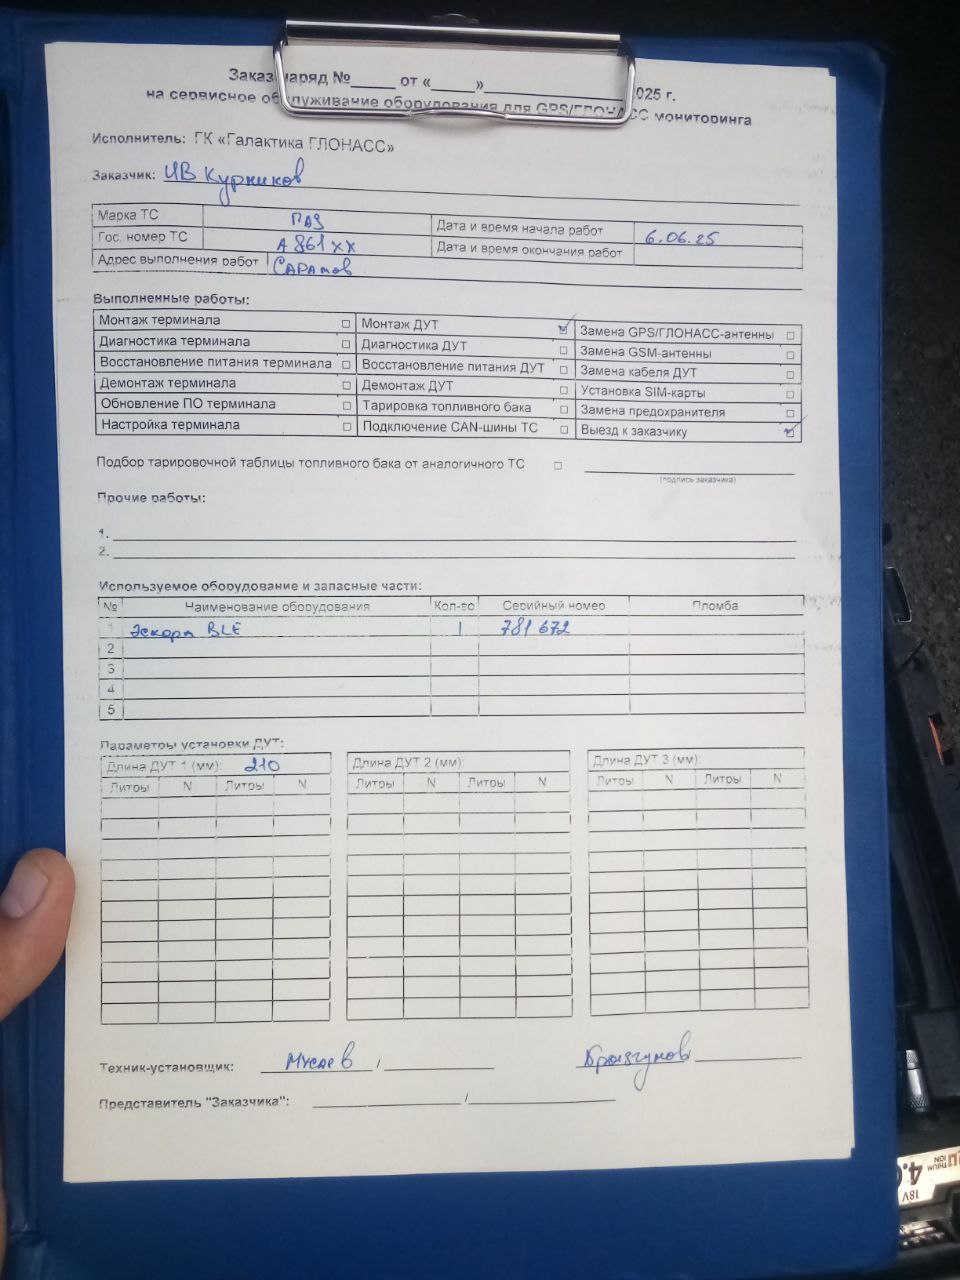 Заказ-наряд №_____ от «_____»________________2025 г.
на сервисное обслуживание оборудования для GPS/ГЛОНАСС мониторинга
Исполнитель: ГК «Галактика ГЛОНАСС»
Заказчик: ИВ Курников
Марка ТС ПАЗ Дата и время начала работ 6.06.25
Гос. номер ТС А 861 ХХ Дата и время окончания работ
Адрес выполнения работ Саратов
Выполненные работы:
Монтаж терминала □ Монтаж ДУТ ☑ Замена GPS/ГЛОНАСС-антенны □
Диагностика терминала □ Диагностика ДУТ □ Замена GSM-антенны □
Восстановление питания терминала □ Восстановление питания ДУТ □ Замена кабеля ДУТ □
Демонтаж терминала □ Демонтаж ДУТ □ Установка SIM-карты □
Обновление ПО терминала □ Тарировка топливного бака □ Замена предохранителя □
Настройка терминала □ Подключение CAN-шины ТС □ Выезд к заказчику ☑
Подбор тарировочной таблицы топливного бака от аналогичного ТС □
(подпись заказчика)
Прочие работы:
1.
2.
Используемое оборудование и запасные части:
№ Наименование оборудования Кол-во Серийный номер Пломба
1 Эскорт BLE 1 781 672
2
3
4
5
Параметры установки ДУТ:
Длина ДУТ 1 (мм): 210 Длина ДУТ 2 (мм): Длина ДУТ 3 (мм):
Литры N Литры N Литры N Литры N Литры N Литры N
Техник-установщик: Мусаев / Брызгунов
Представитель "Заказчика": /
18V 4.0
LITHIUM ION